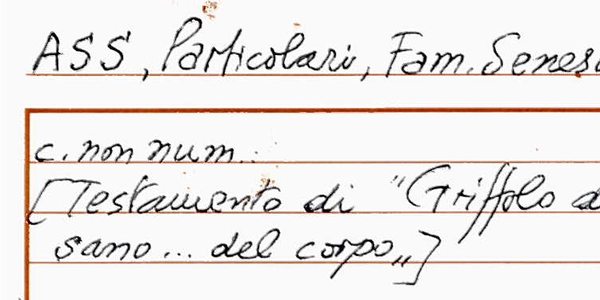 ASS, Particolari, Fam. Senesi
c. non num.:
[Testamento di "Griffolo d
sano... del corpo„]